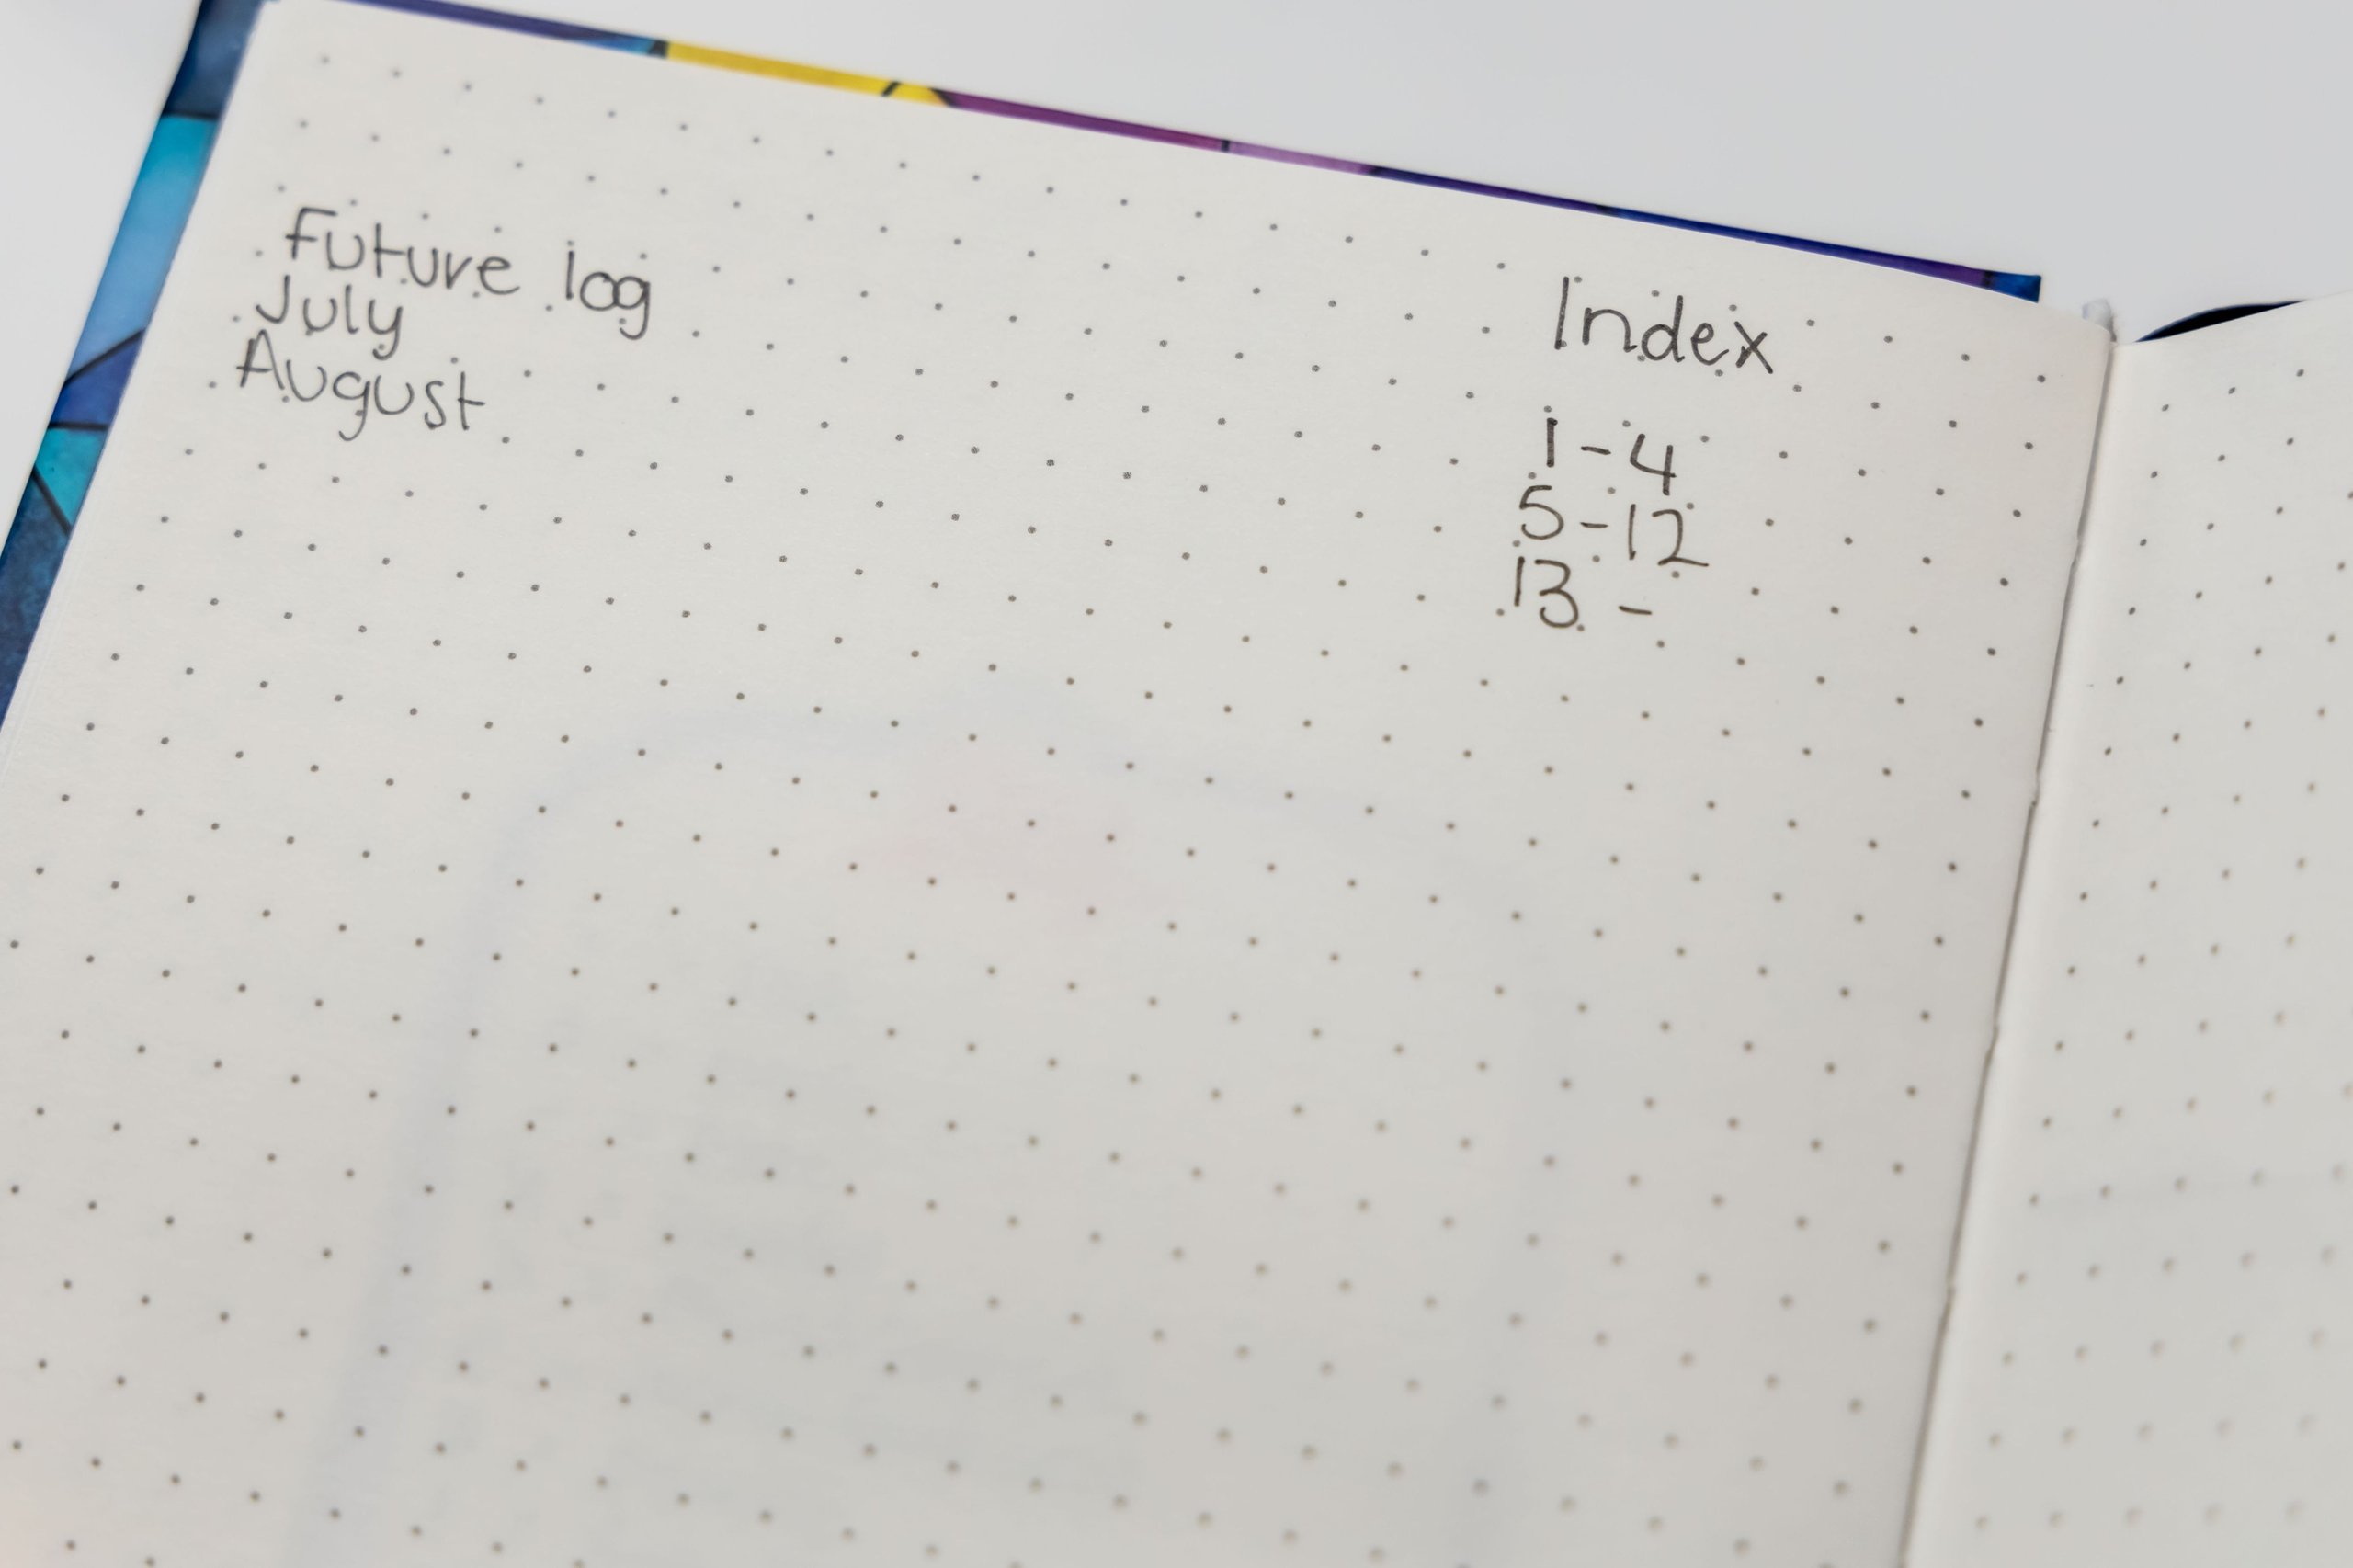 Index
Future log 1-4
July 5-12
August 13 -